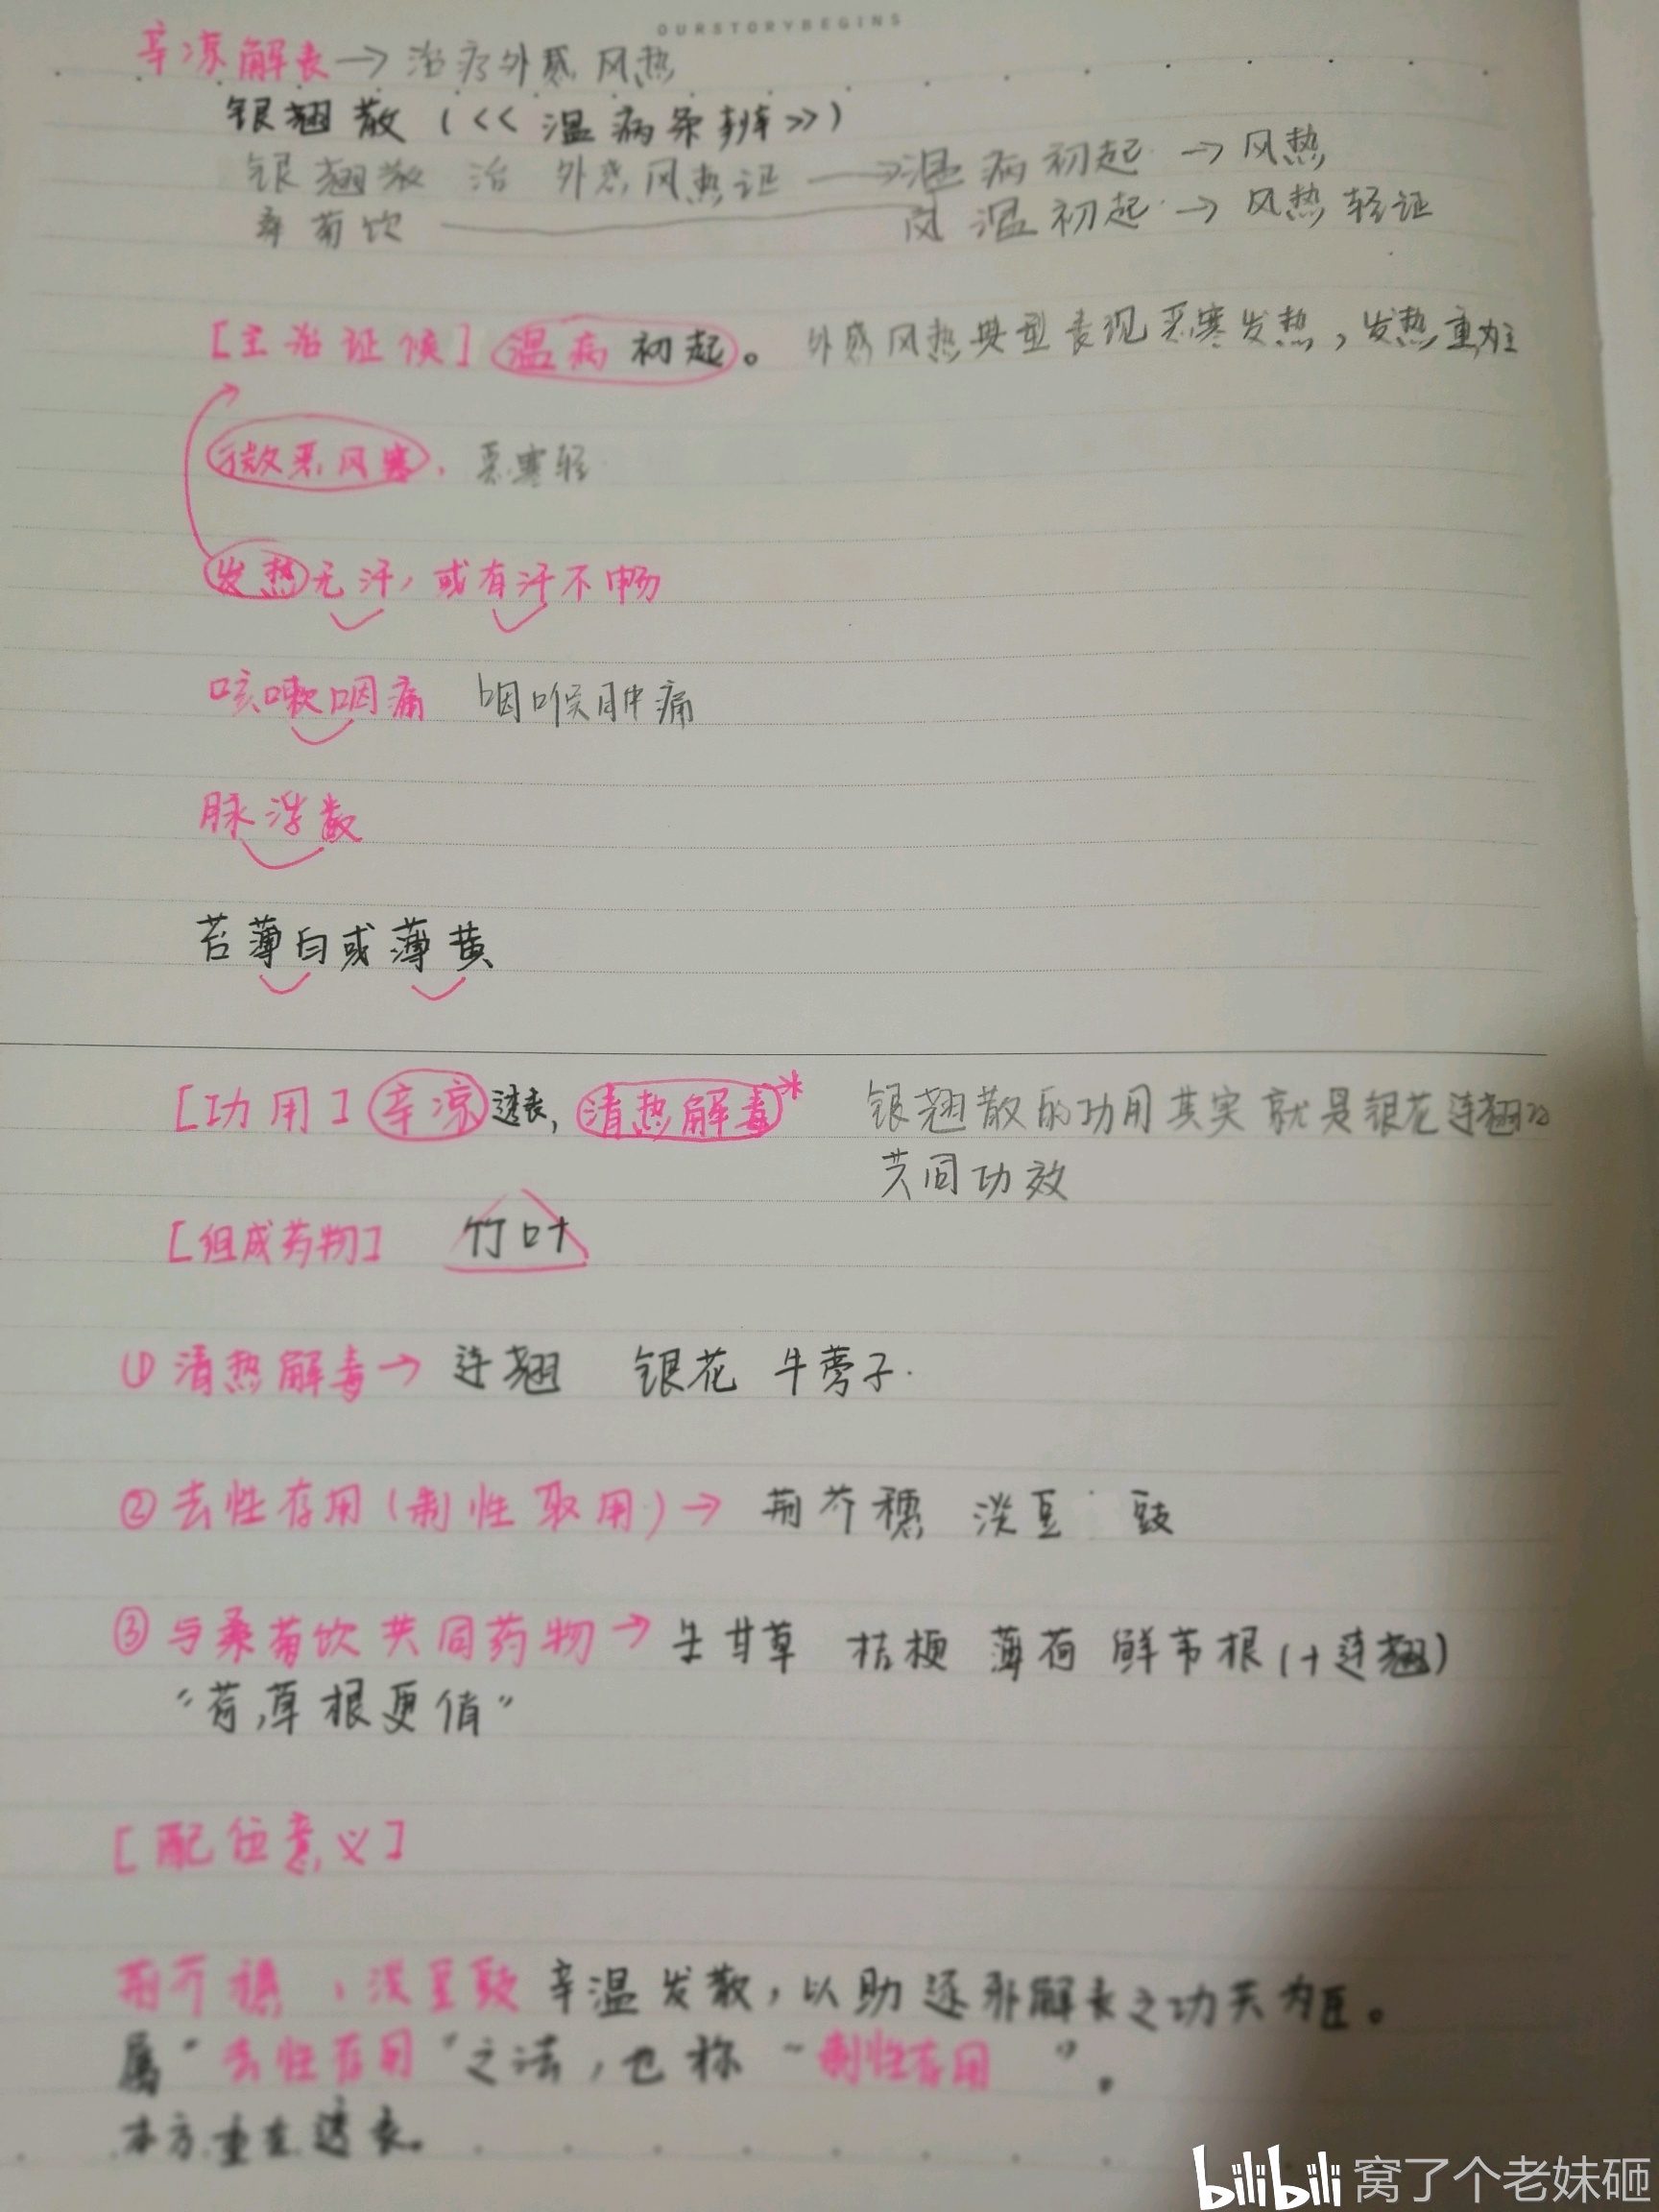 OURSTORYBEGINS
辛凉解表→治疗外感风热
银翘散(《温病条辨》)
银翘散 治 外感风热证 →温病初起→风热
桑菊饮 风温初起→风热轻证
[主治证候]温病初起。 外感风热典型表现恶寒发热,发热重为主
微恶风寒. 恶寒轻
发热无汗,或有汗不畅
咳嗽咽痛 咽喉肿痛
脉浮数
苔薄白或薄黄
[功用]辛凉透表,清热解毒* 银翘散的功用其实就是银花连翘的
共同功效
[组成药物] 竹叶
①清热解毒→ 连翘 银花 牛蒡子.
②去性存用(制性取用)→ 荆芥穗 淡豆豉
③与桑菊饮共同药物→生甘草 桔梗 薄荷 鲜苇根(+连翘)
"荷,草根更俏"
[配伍意义]
荆芥穗,淡豆豉辛温发散,以助逐邪解表之功共为臣。
属"去性存用"之法,也称"制性存用"。
本方重在透表。
bilibili 窝了个老妹砸